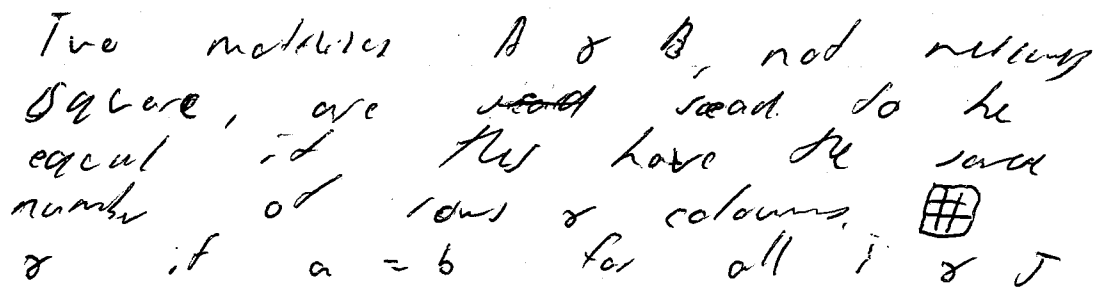 Two matrices A & B, not necessary
square, are said to be
equal if they have the same
number of rows & coloumns.
& if a = b for all i & J